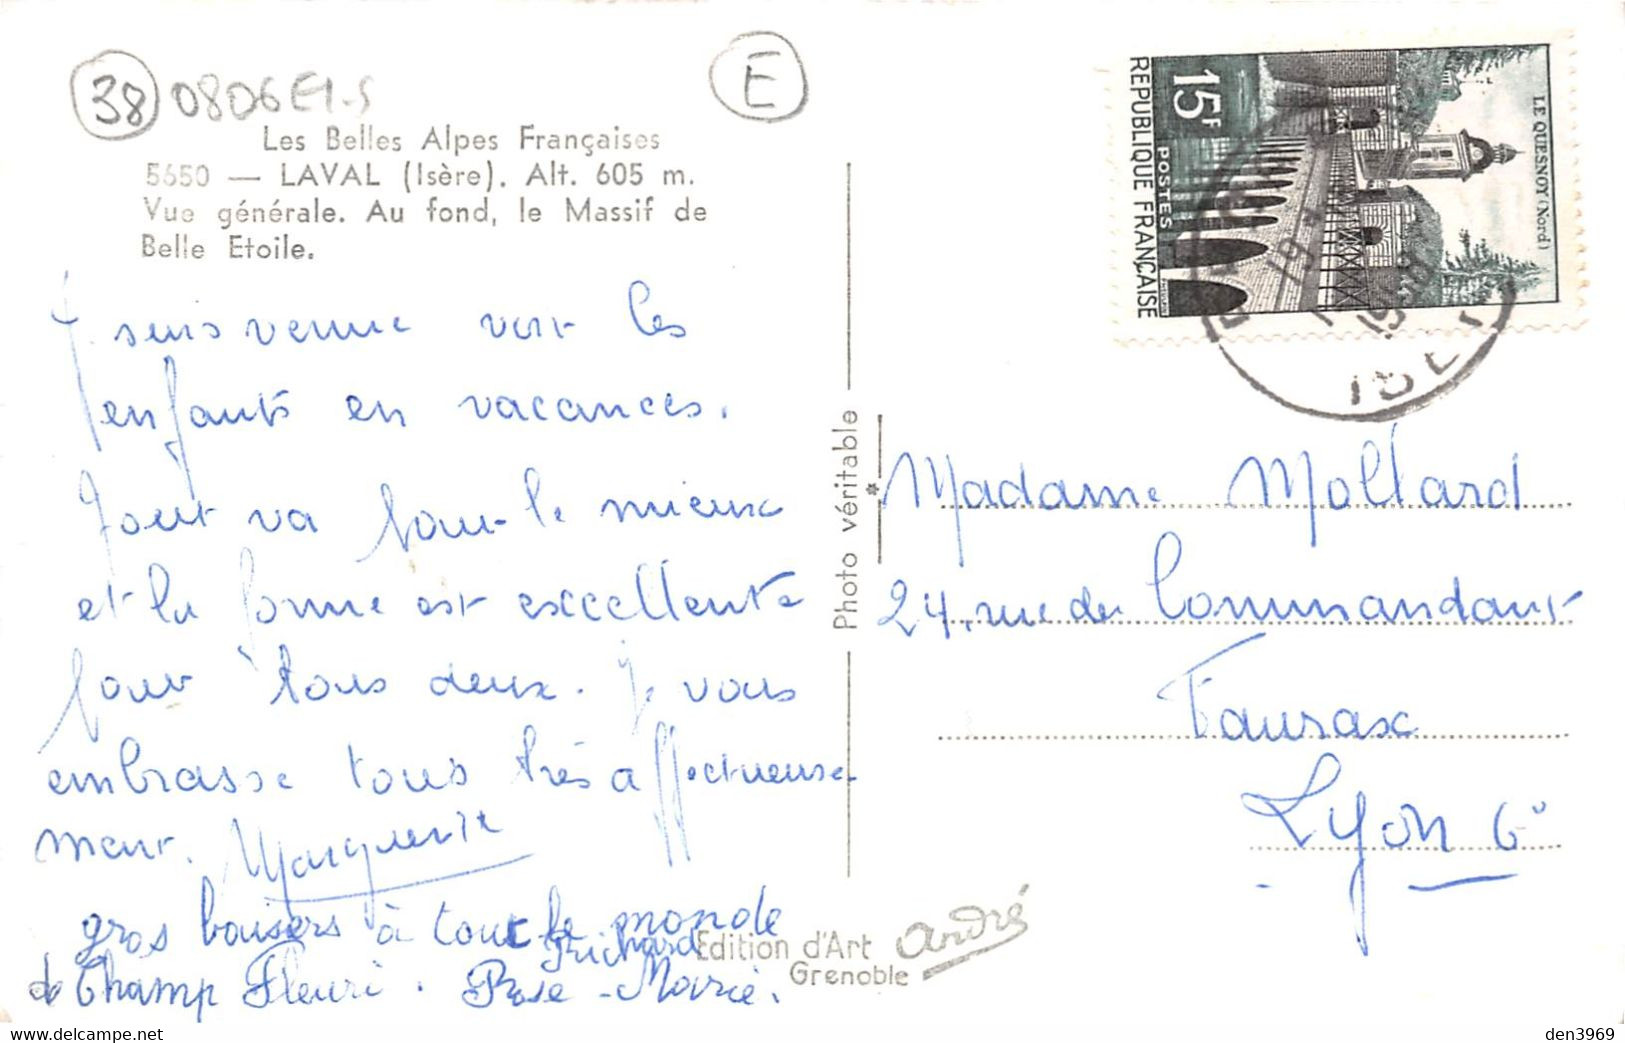 38 0806E1-S
E
Les Belles Alpes Françaises
5650 — LAVAL (Isère). Alt. 605 m.
Vue générale. Au fond, le Massif de
Belle Etoile.
J. suis venue voir les
enfants en vacances.
Tout va pour le mieux
et la forme est excellente
pour tous deux. Je vous
embrasse tous très affectueuse
ment. Marguerite
gros baisers à tout le monde
de Champ Fleuri. Richard
Rose-Marie.
Photo véritable
*
Edition d'Art André
Grenoble
15F
POSTES
REPUBLIQUE FRANÇAISE
LE QUESNOY (Nord)
19
Madame Mollard
24, rue des Commandant
Faurax
Lyon 6e
den3969